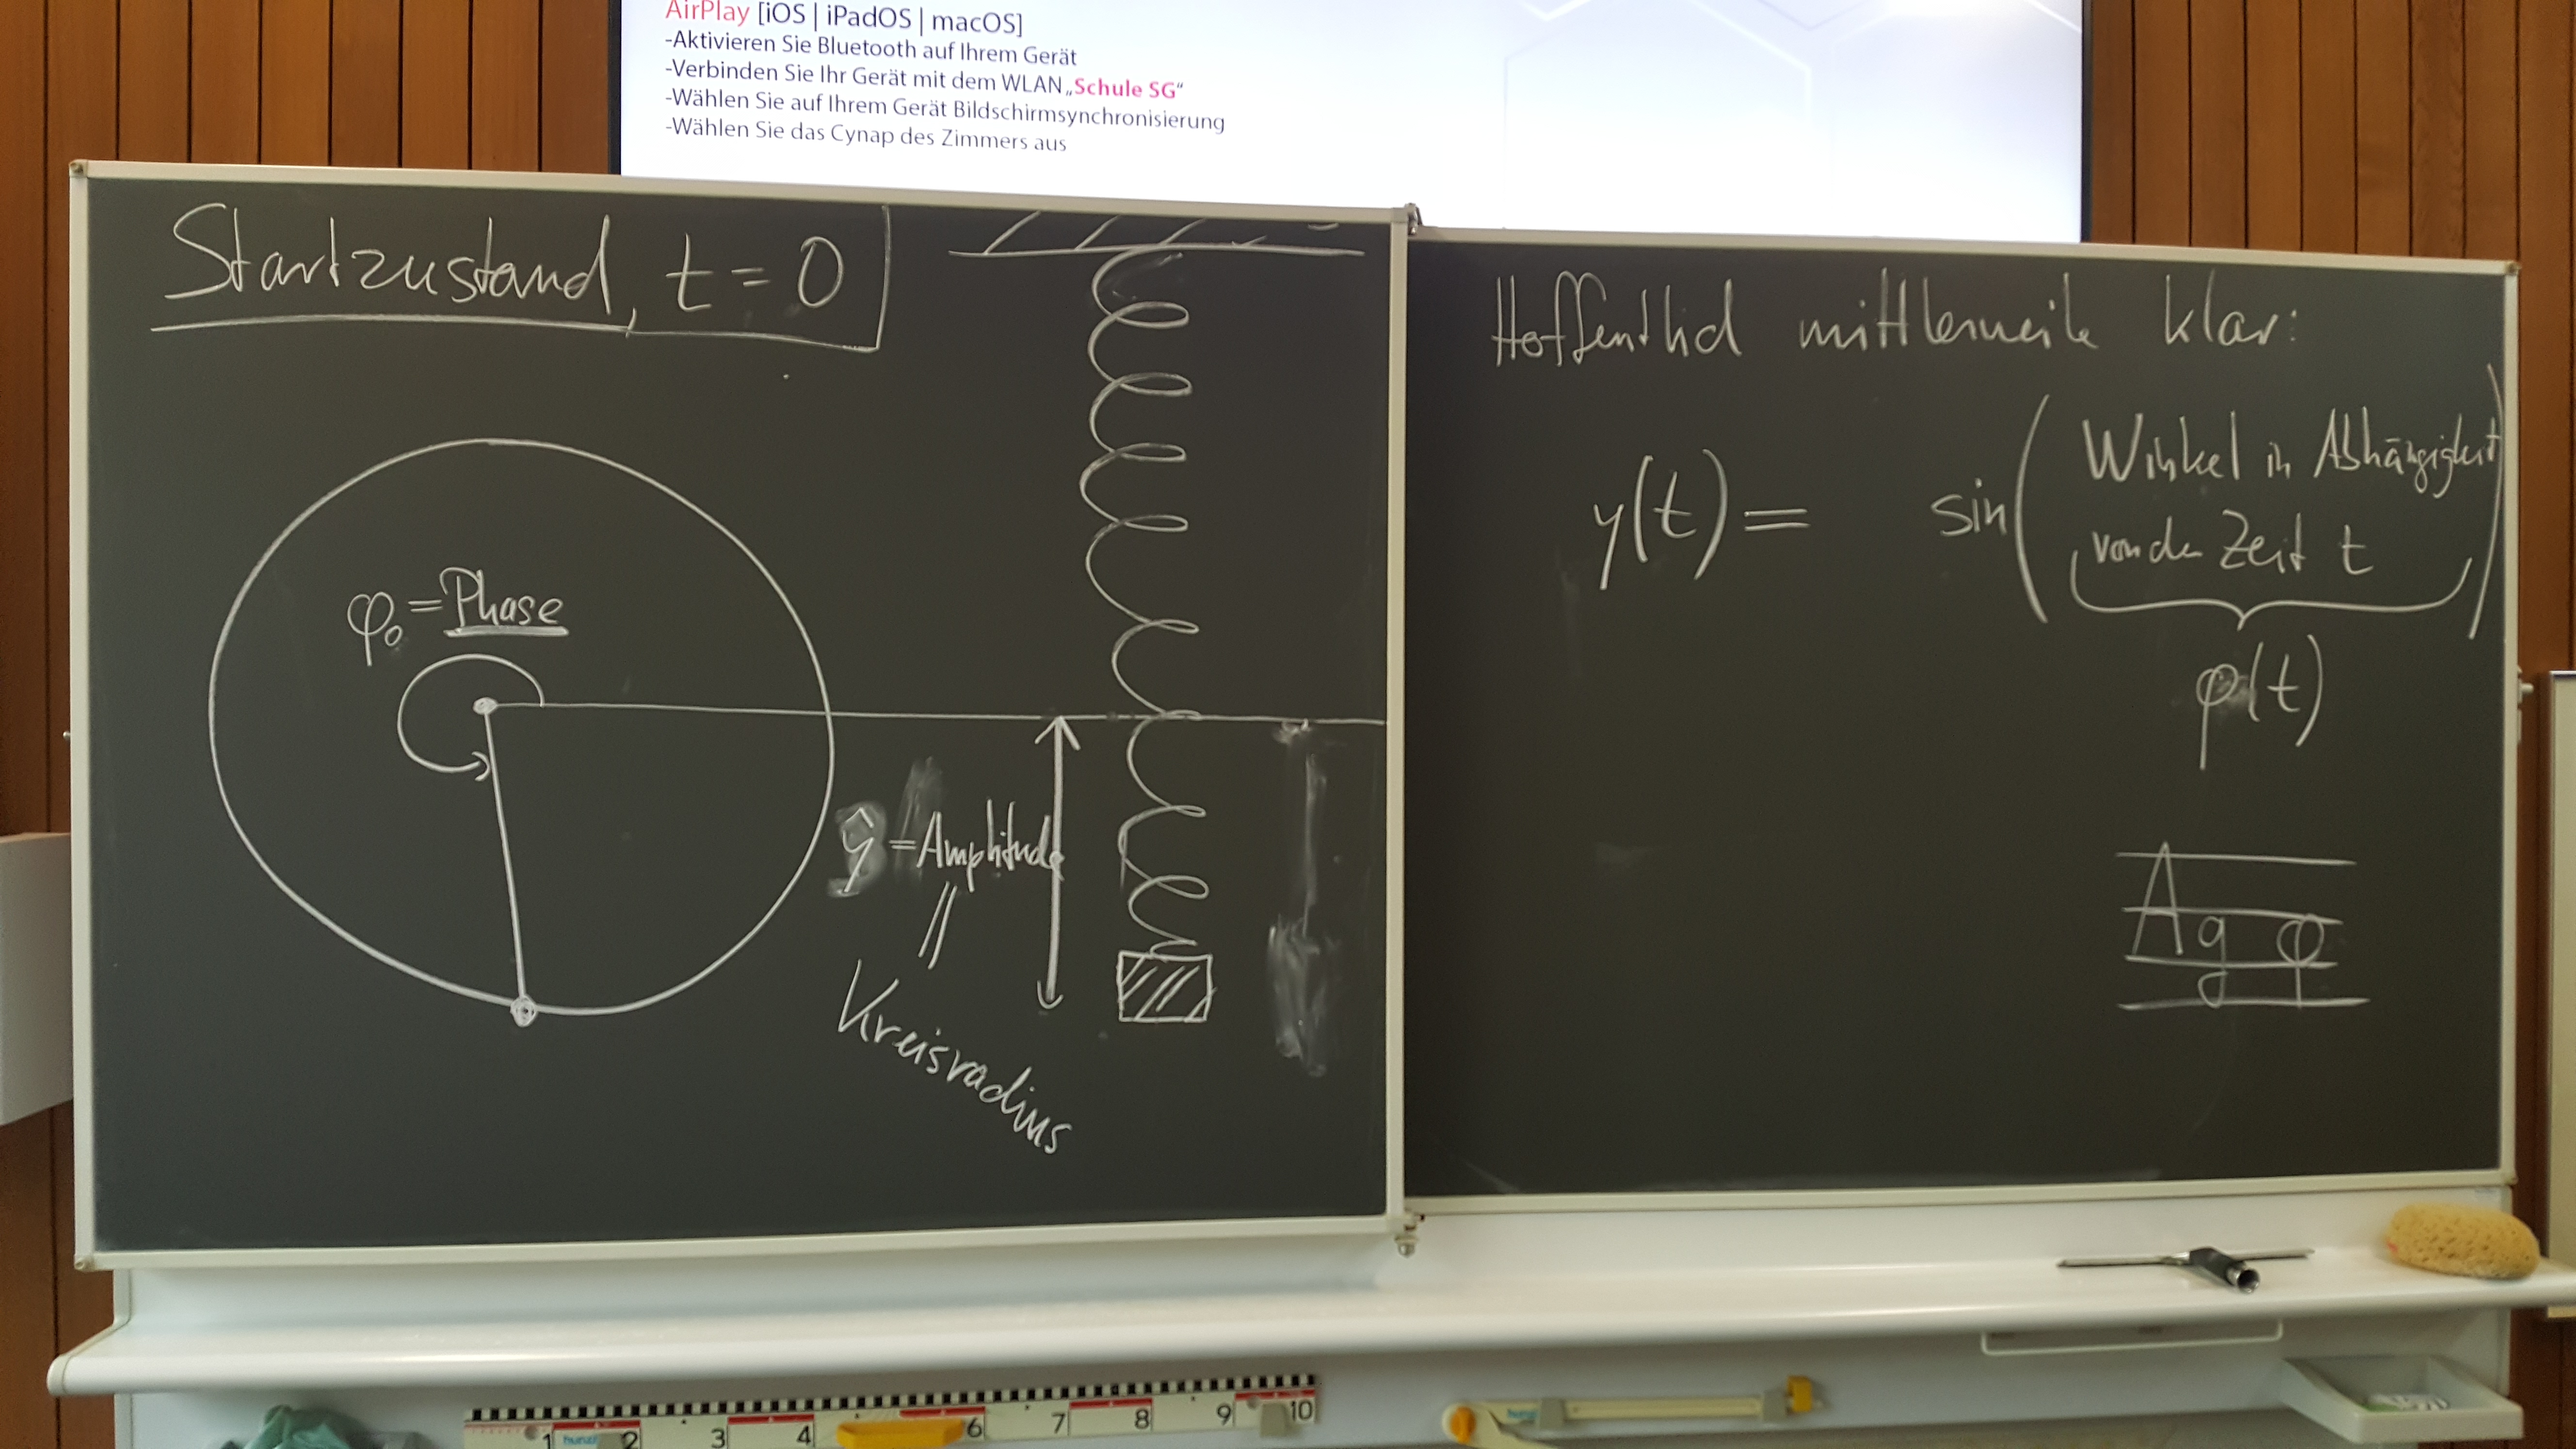 AirPlay [iOS | iPadOS | macOS]
-Aktivieren Sie Bluetooth auf Ihrem Gerät
-Verbinden Sie Ihr Gerät mit dem WLAN „Schule SG“
-Wählen Sie auf Ihrem Gerät Bildschirmsynchronisierung
-Wählen Sie das Cynap des Zimmers aus
Startzustand, t = 0
φ₀ = Phase
ŷ = Amplitude
||
Kreisradius
Hoffentlich mittlerweile klar:
y(t) = sin( Winkel in Abhängigkeit
von der Zeit t )
φ(t)
A g φ
1 hunzi 2 3 4 6 7 8 9 10